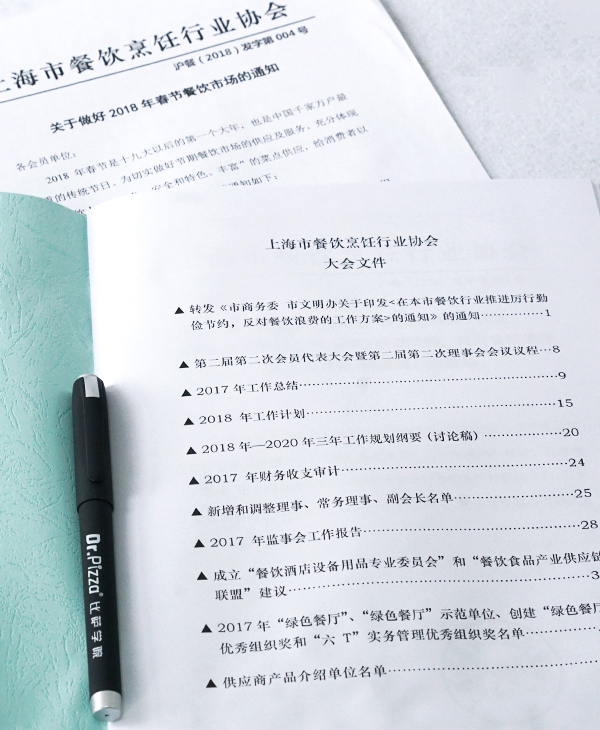 上海市餐饮烹饪行业协会
沪餐（2018）发字第 004 号
关于做好 2018 年春节餐饮市场的通知
各会员单位：
2018 年春节是十九大以后的第一个大年，也是中国千家万户最
的传统节日。为切实做好节期餐饮市场的供应及服务，充分体现
安全和特色、丰富”的菜点供应，给消费者以
通知如下：
上海市餐饮烹饪行业协会
大会文件
▲ 转发《市商务委 市文明办关于印发<在本市餐饮行业推进厉行勤
俭节约，反对餐饮浪费的工作方案>的通知》的通知……………1
▲ 第二届第二次会员代表大会暨第二届第二次理事会会议议程…8
▲ 2017 年工作总结……………………………………………9
▲ 2018 年工作计划……………………………………………15
▲ 2018 年—2020 年三年工作规划纲要（讨论稿）……………20
▲ 2017 年财务收支审计………………………………………24
▲ 新增和调整理事、常务理事、副会长名单…………………25
▲ 2017 年监事会工作报告……………………………………28
▲ 成立“餐饮酒店设备用品专业委员会”和“餐饮食品产业供应链
联盟”建议……………………………………………………3
▲ 2017 年“绿色餐厅”、“绿色餐厅”示范单位、创建“绿色餐厅
优秀组织奖和“六 T”实务管理优秀组织奖名单……………
▲ 供应商产品介绍单位名单……………………………………
Dr.Pizza® 比萨学院